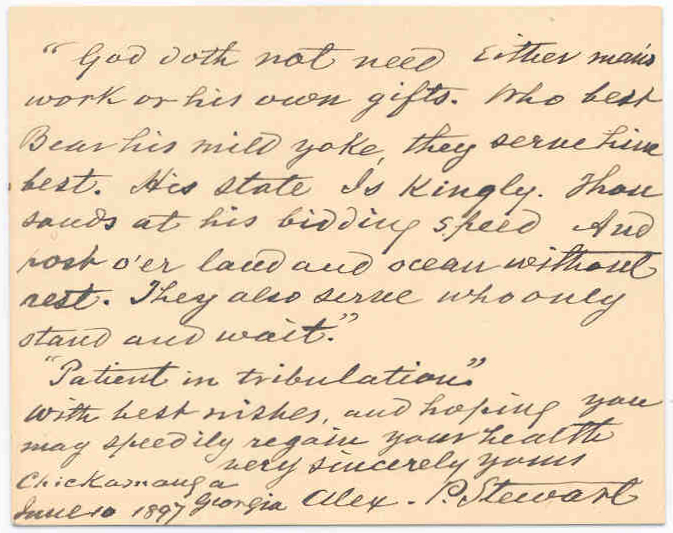 "God doth not need Either man's
work or his own gifts. Who best
Bear his mild yoke, they serve him
best. His state Is Kingly. Thou
sands at his bidding speed And
post o'er land and ocean without
rest. They also serve who only
stand and wait."
"Patient in tribulation."
with best wishes, and hoping you
may speedily regain your health
very sincerely yours
Chickamauga
Georgia Alex. P. Stewart
June 10 1897